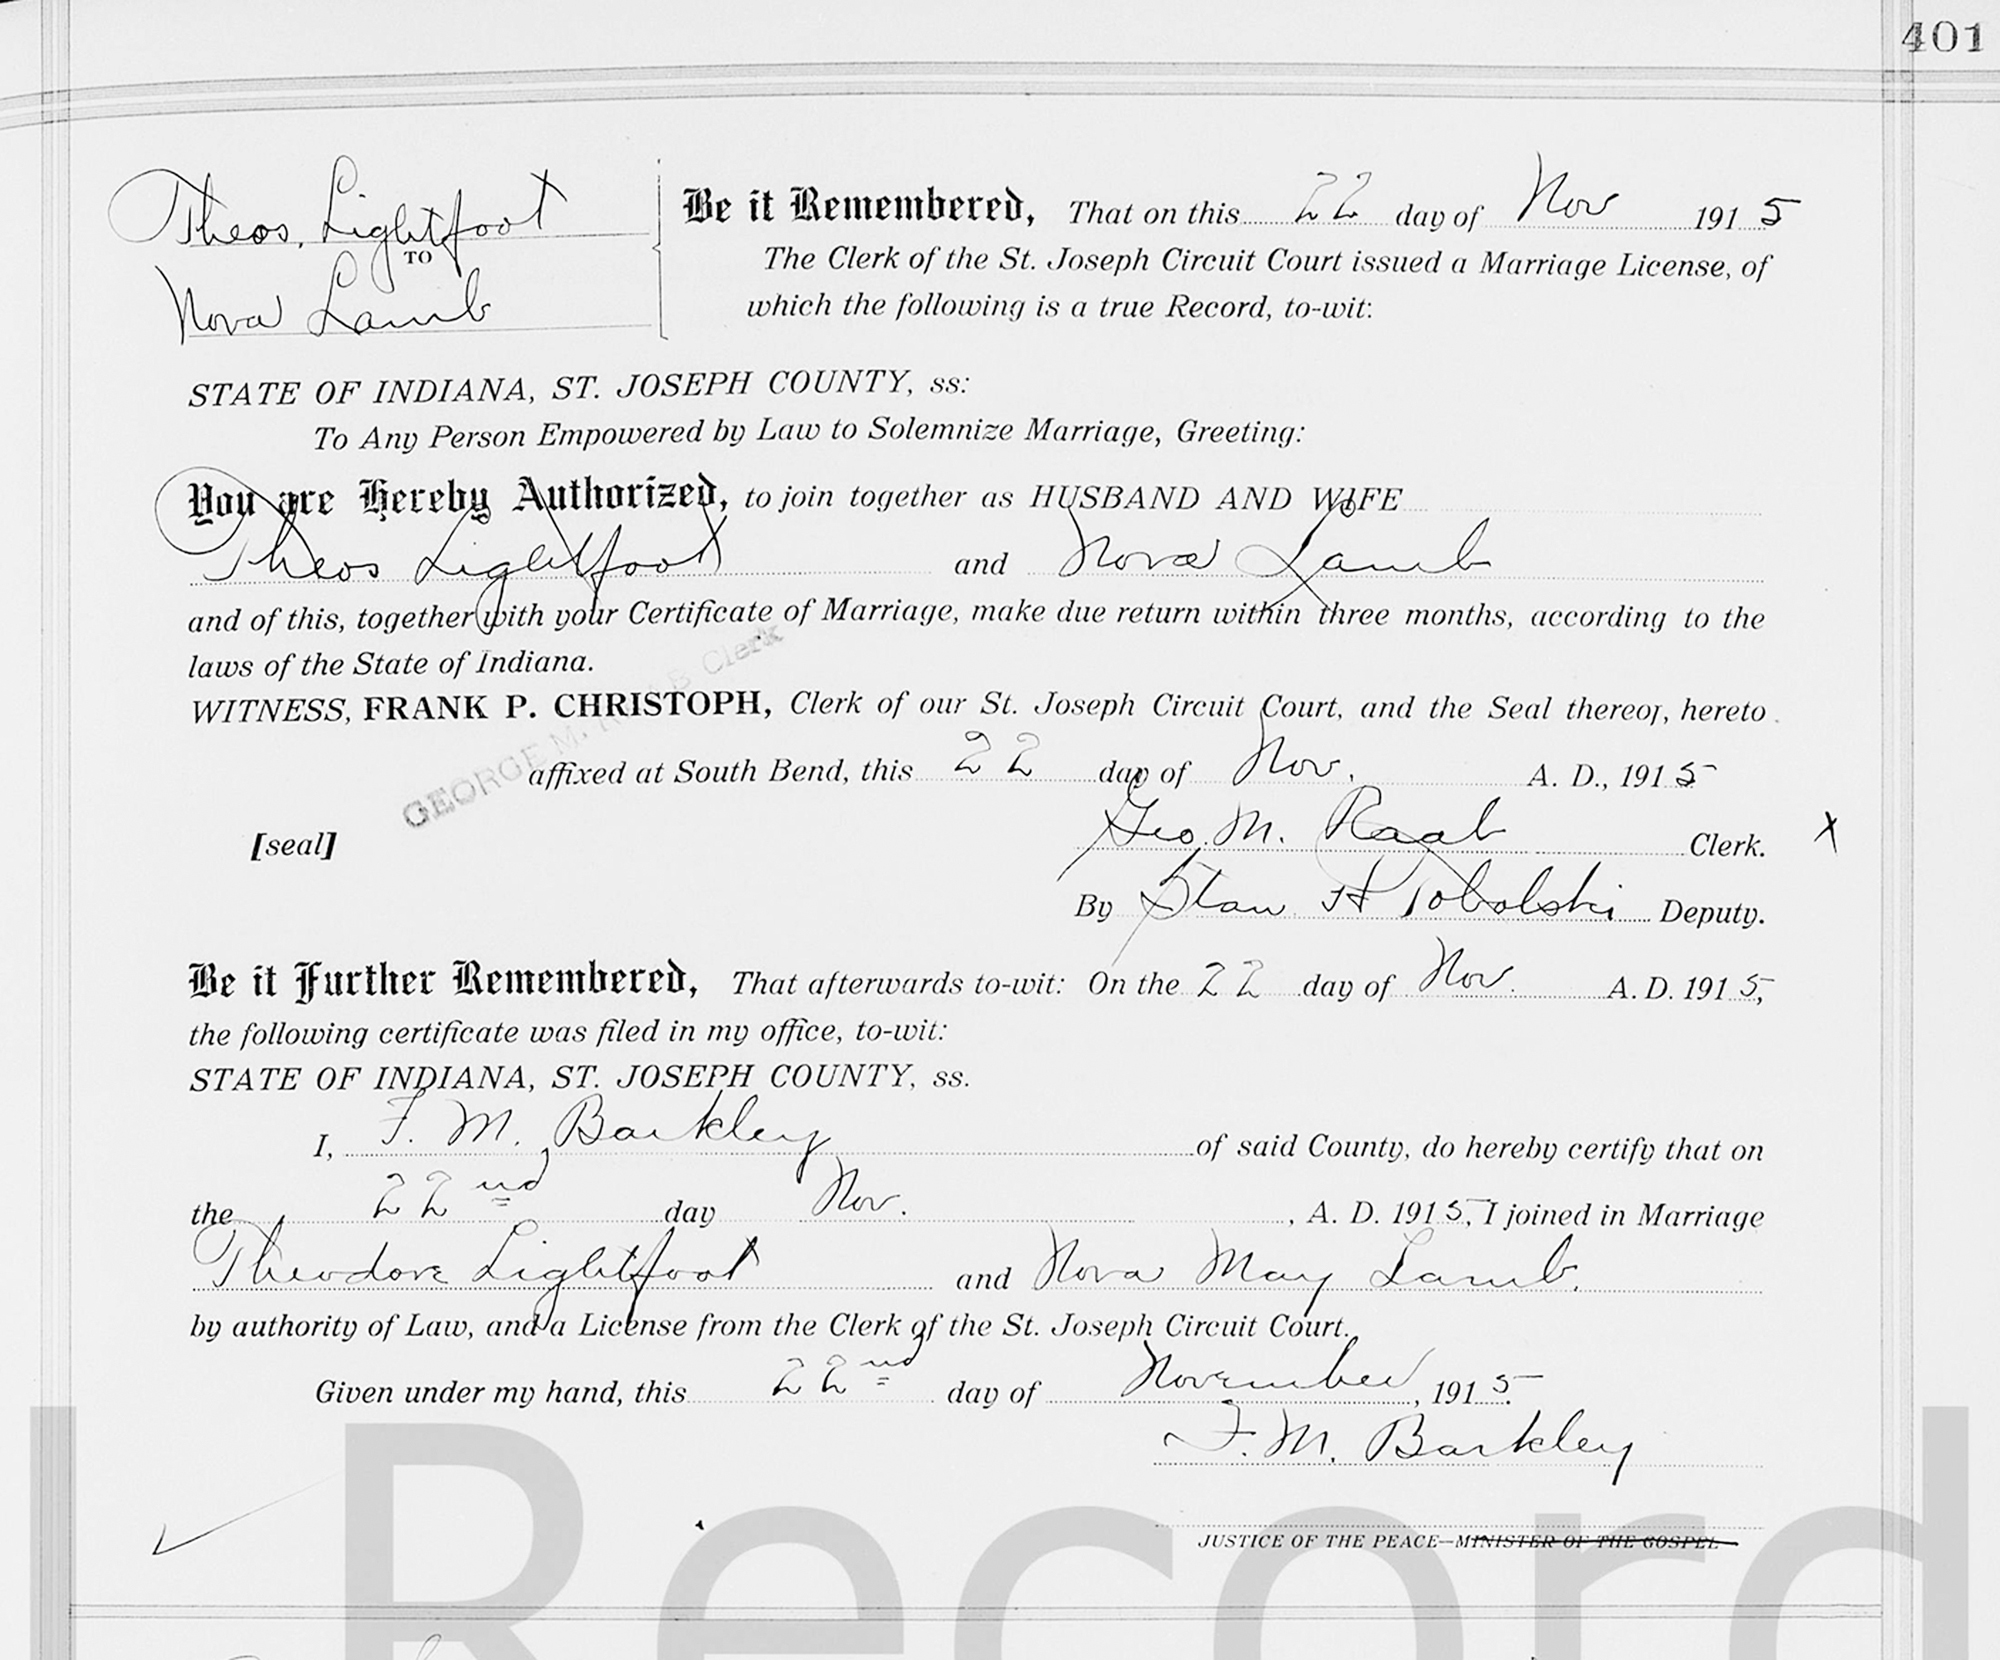 401
Theos. Lightfoot
TO
Nova Lamb
Be it Remembered, That on this 22 day of Nov 1915
The Clerk of the St. Joseph Circuit Court issued a Marriage License, of
which the following is a true Record, to-wit:
STATE OF INDIANA, ST. JOSEPH COUNTY, ss:
To Any Person Empowered by Law to Solemnize Marriage, Greeting:
You are Hereby Authorized, to join together as HUSBAND AND WIFE
Theos Lightfoot and Nova Lamb
and of this, together with your Certificate of Marriage, make due return within three months, according to the
laws of the State of Indiana.
WITNESS, FRANK P. CHRISTOPH, Clerk of our St. Joseph Circuit Court, and the Seal thereof, hereto
affixed at South Bend, this 22 day of Nov. A. D., 1915
GEORGE M. RAAB Clerk
[seal]
Geo. M. Raab Clerk. X
By Stan H Tobolski Deputy.
Be it Further Remembered, That afterwards to-wit: On the 22 day of Nov. A. D. 1915,
the following certificate was filed in my office, to-wit:
STATE OF INDIANA, ST. JOSEPH COUNTY, ss.
I, F. M. Barkley of said County, do hereby certify that on
the 22nd day Nov. , A. D. 1915, I joined in Marriage
Theodore Lightfoot and Nova May Lamb.
by authority of Law, and a License from the Clerk of the St. Joseph Circuit Court.
Given under my hand, this 22nd day of November, 1915.
F. M. Barkley
JUSTICE OF THE PEACE—MINISTER OF THE GOSPEL
Record